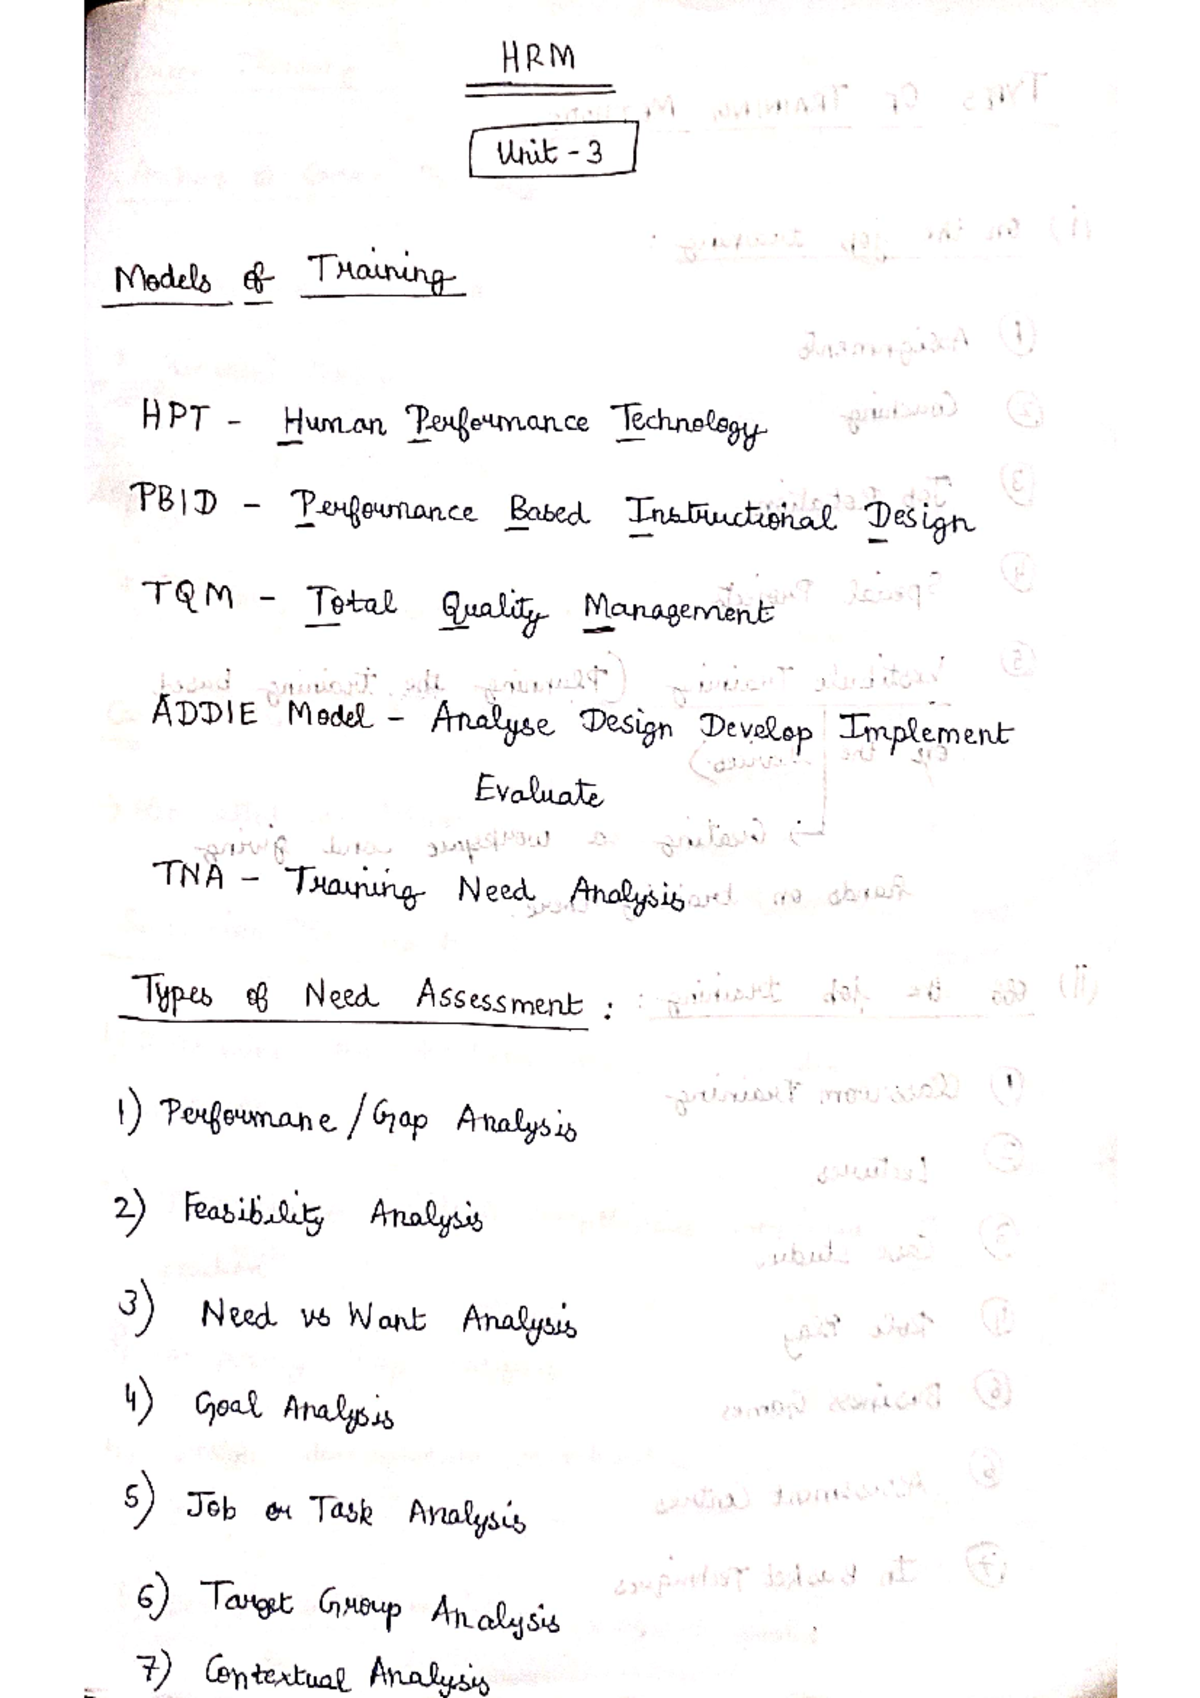 HRM
Unit - 3
Models of Training
HPT - Human Performance Technology
PBID - Performance Based Instructional Design
TQM - Total Quality Management
ADDIE Model - Analyse Design Develop Implement
Evaluate
TNA - Training Need Analysis
Types of Need Assessment :
1) Performane / Gap Analysis
2) Feasibility Analysis
3) Need vs Want Analysis
4) Goal Analysis
5) Job or Task Analysis
6) Target Group Analysis
7) Contextual Analysis